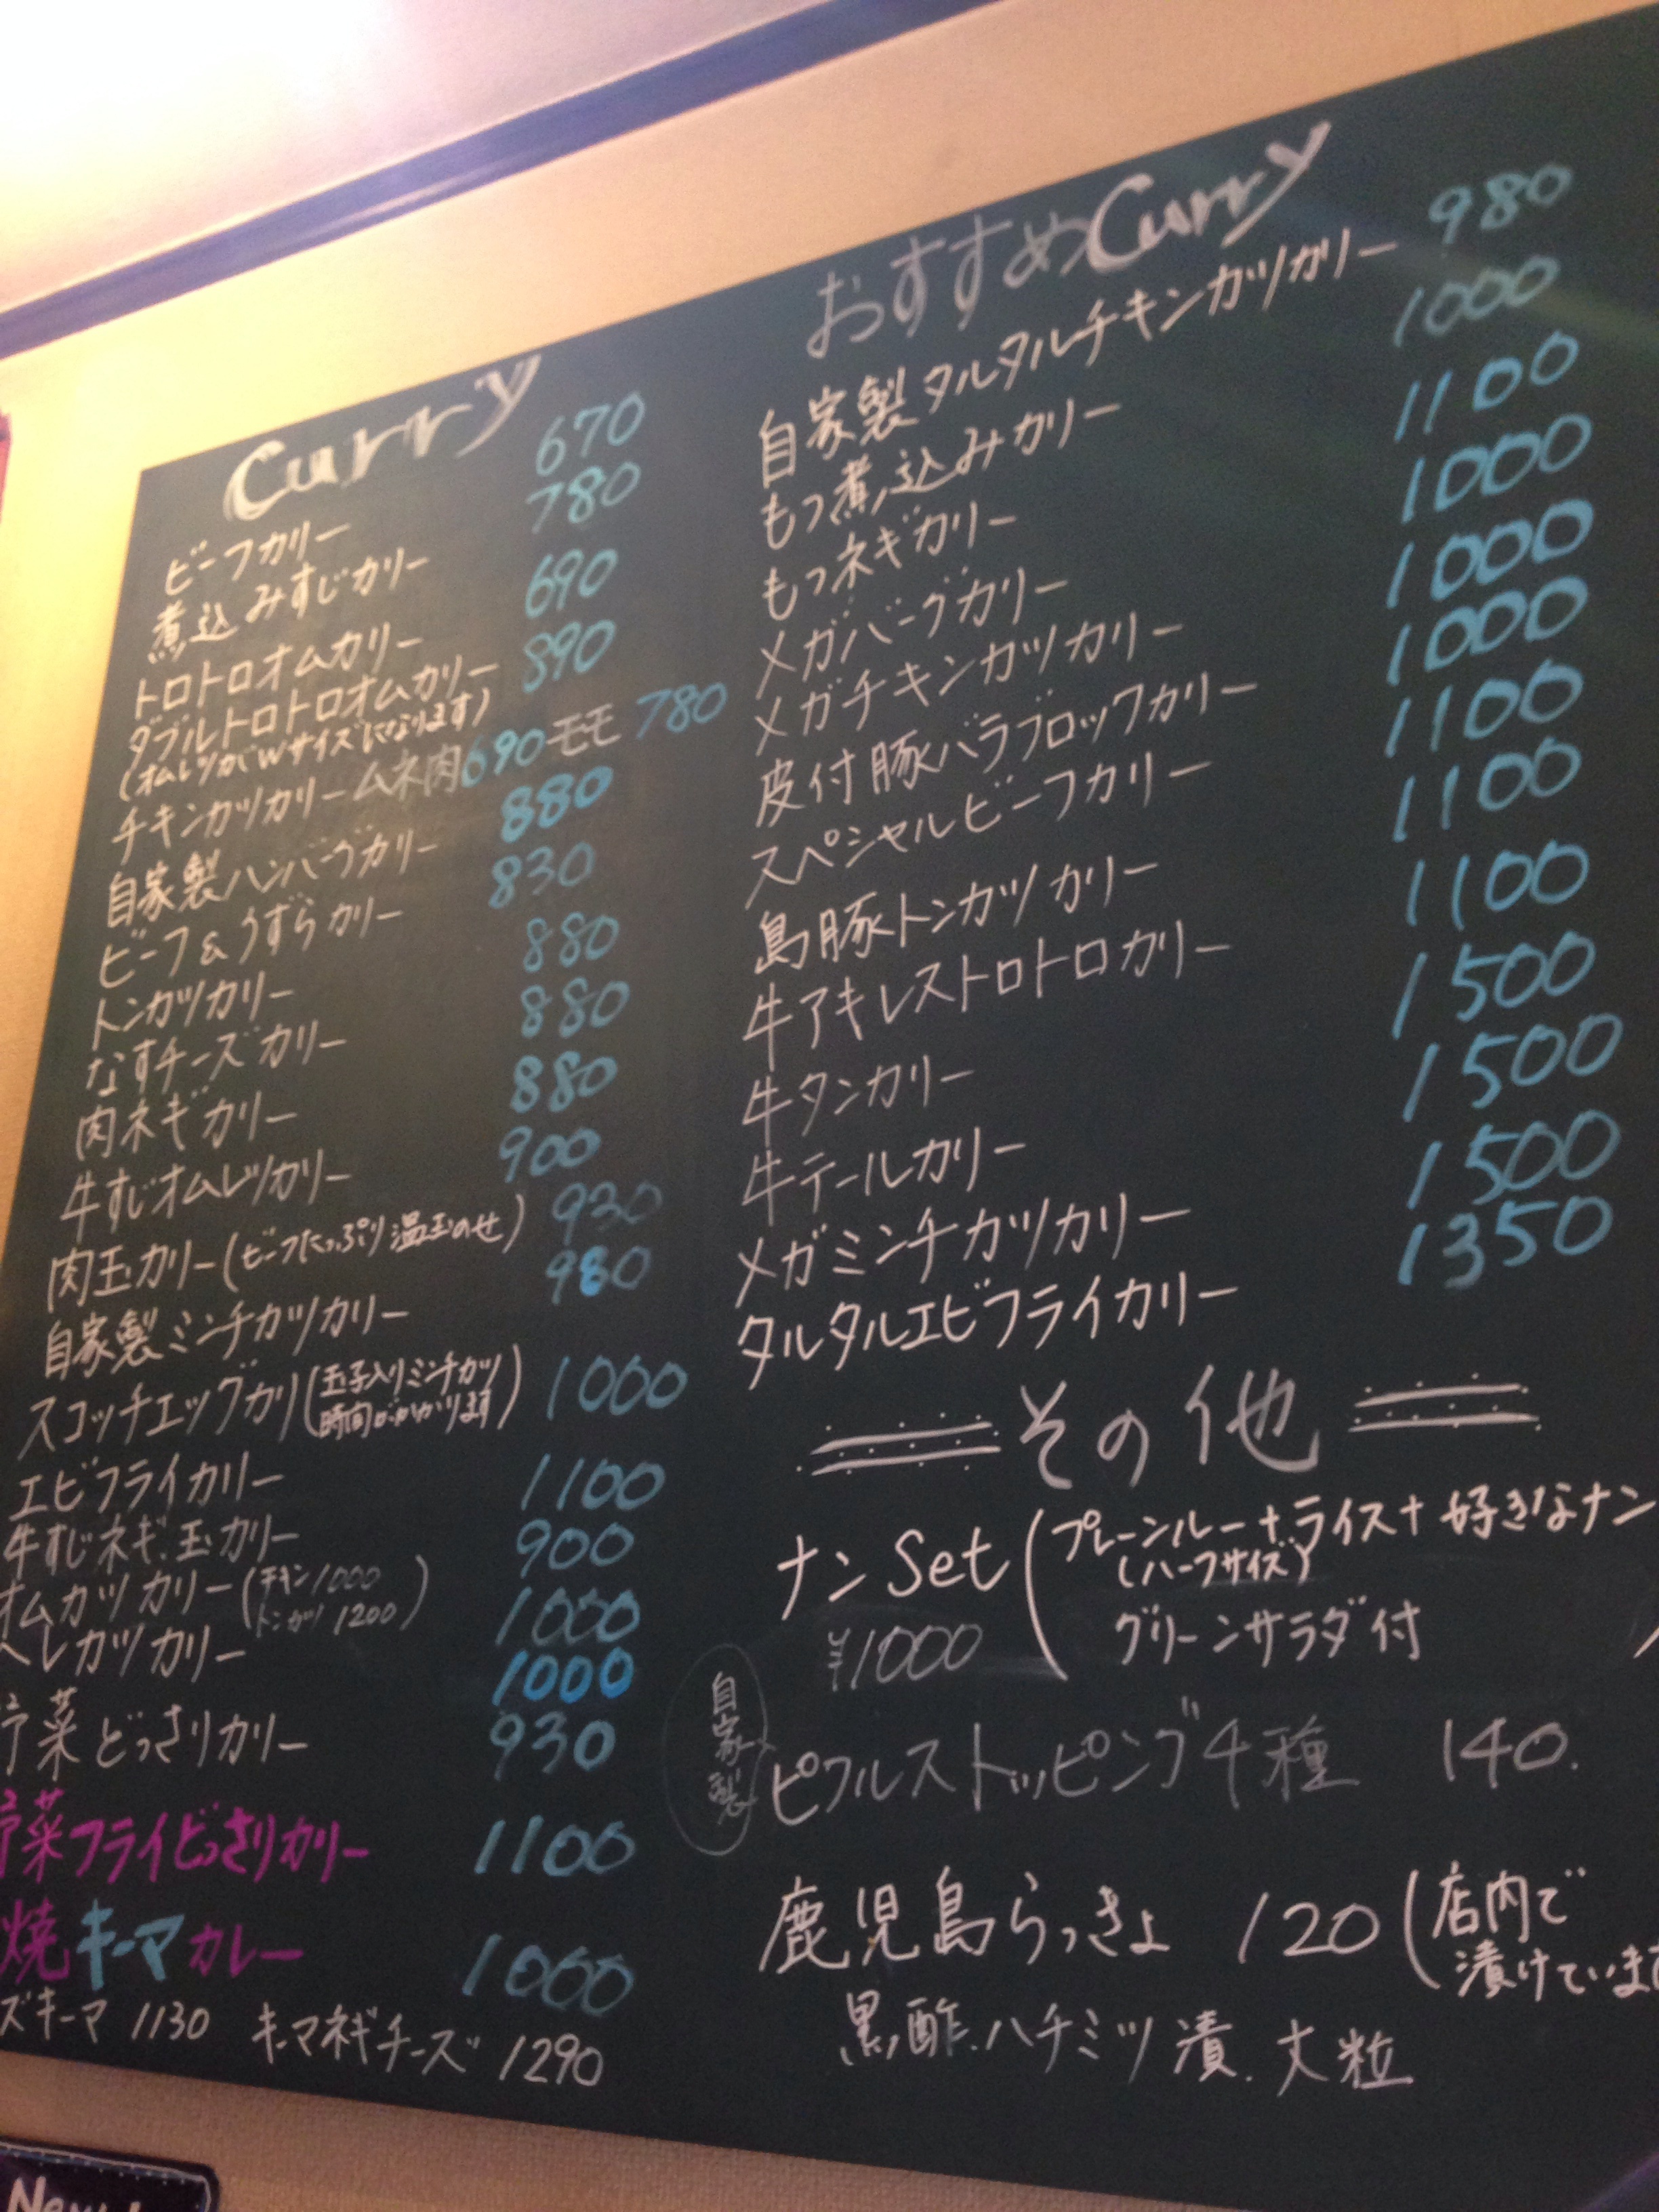 Curry
ビーフカリー 670
煮込みすじカリー 780
トロトロオムカリー 690
ダブルトロトロオムカリー 890
(オムレツがWサイズになります)
チキンカツカリー ムネ肉690 モモ 780
自家製ハンバーグカリー 880
ビーフ&うずらカリー 830
トンカツカリー 880
なすチーズカリー 880
肉ネギカリー 880
牛すじオムレツカリー 900
肉玉カリー(ビーフたっぷり温玉のせ) 930
自家製ミンチカツカリー 980
スコッチエッグカリ(玉子入りミンチカツ 時間がかかります) 1000
エビフライカリー 1100
牛すじネギ玉カリー 900
オムカツカリー(チキン1000 トンカツ1200) 1000
ヘレカツカリー 1000
野菜どっさりカリー 930
野菜フライどっさりカリー 1100
焼キーマカレー 1000
ズキーマ 1130 キーマネギチーズ 1290
おすすめCurry
自家製タルタルチキンカツカリー 980
もつ煮込みカリー 1000
もつネギカリー 1100
メガバーグカリー 1000
メガチキンカツカリー 1000
皮付豚バラブロックカリー 1000
スペシャルビーフカリー 1100
島豚トンカツカリー 1100
牛アキレストロトロカリー 1100
牛タンカリー 1500
牛テールカリー 1500
メガミンチカツカリー 1500
タルタルエビフライカリー 1350
その他
ナンSet(プレーンルー+ライス+好きなナン
(ハーフサイズ)
¥1000 グリーンサラダ付
自家製
ピクルストッピング4種 140.
鹿児島らっきょ 120(店内で
漬けていま
黒酢.ハチミツ漬.大粒